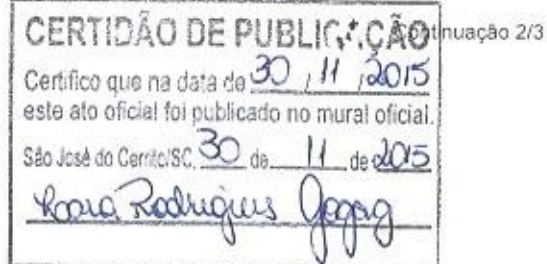 CERTIDÃO DE PUBLICAÇÃO
ntinuação 2/3
Certifico que na data de 30 / 11 / 2015
este ato oficial foi publicado no mural oficial.
São José do Cerrito/SC, 30 de 11 de 2015
Rodrigues